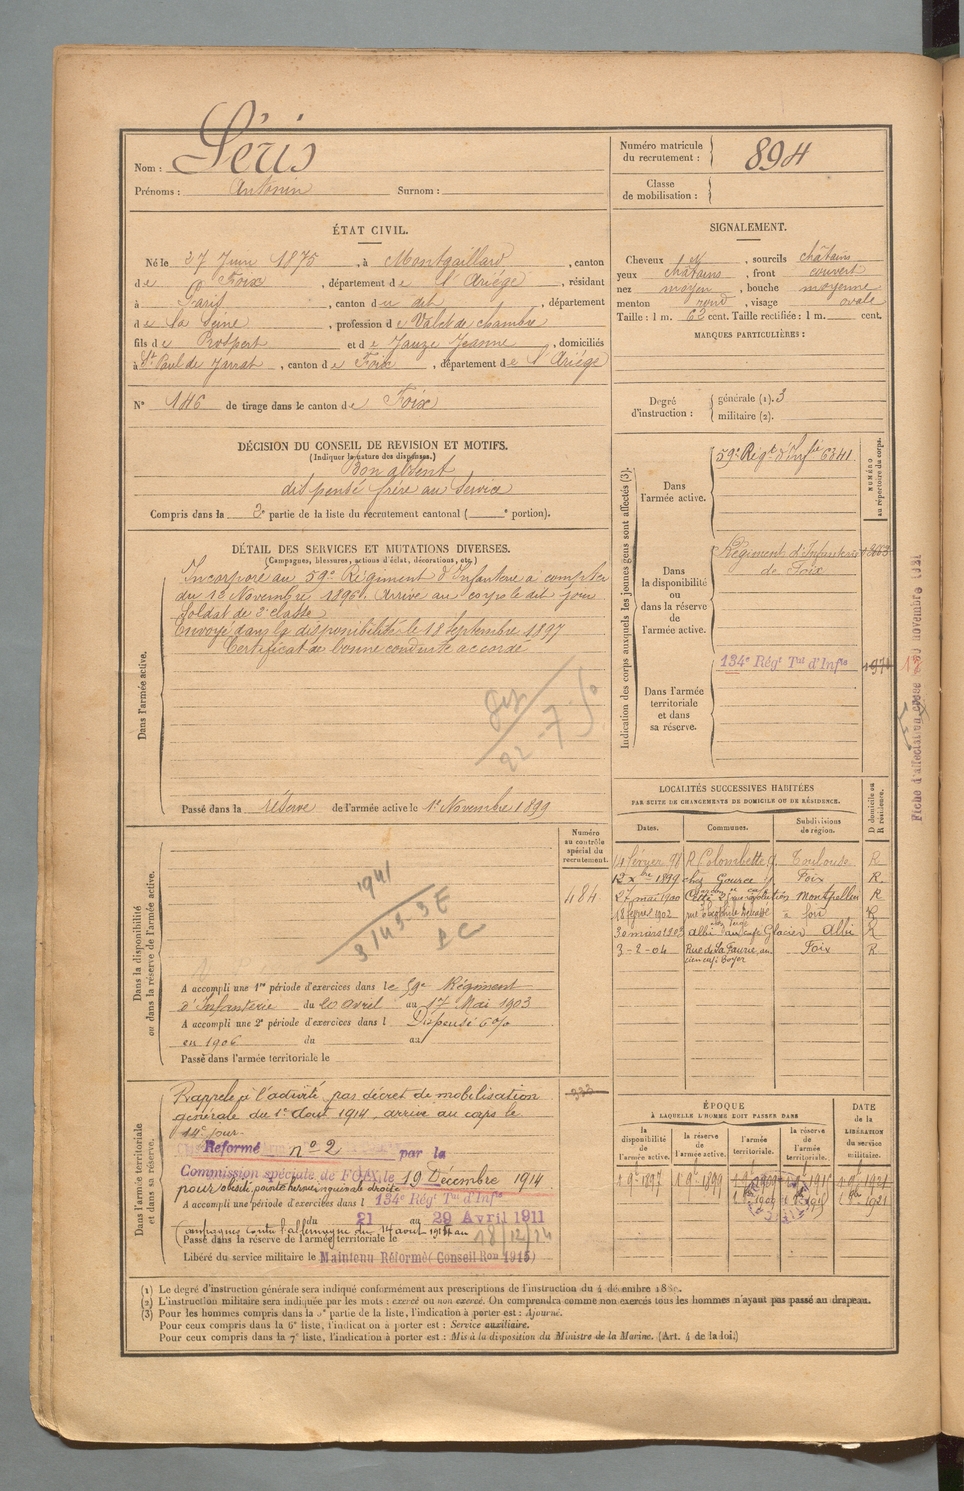 Nom : Séris
Prénoms : Antonin Surnom :
Numéro matricule du recrutement : 894
Classe de mobilisation :
ÉTAT CIVIL.
Né le 27 Juin 1875, à Montgaillard, canton
de Foix, département de l'Ariège, résidant
à Paris, canton du dit, département
de la Seine, profession de Valet de chambre
fils de Prospert et de Jauze Jeanne, domiciliés
à St Paul de Jarrat, canton de Foix, département de l'Ariège
N° 146 de tirage dans le canton de Foix
SIGNALEMENT.
Cheveux , sourcils châtains
yeux châtains, front couvert
nez moyen, bouche moyenne
menton rond, visage ovale
Taille : 1 m. 63 cent. Taille rectifiée : 1 m. cent.
MARQUES PARTICULIÈRES :
Degré d'instruction : générale (1). 3
militaire (2).
DÉCISION DU CONSEIL DE REVISION ET MOTIFS.
(Indiquer la nature des dispenses.)
Bon absent
dispensé frère au service
Compris dans la 2e partie de la liste du recrutement cantonal ( e portion).
DÉTAIL DES SERVICES ET MUTATIONS DIVERSES.
(Campagnes, blessures, actions d'éclat, décorations, etc.)
Dans l'armée active.
Incorporé au 59e Régiment d'Infanterie à compter
du 13 Novembre 1896. Arrivé au corps le dit jour
Soldat de 2e classe
Envoyé dans la disponibilité le 18 Septembre 1897
Certificat de bonne conduite accordé
Passé dans la réserve de l'armée active le 1er Novembre 1899
Indication des corps auxquels les jeunes gens sont affectés (3).
NUMÉRO au répertoire du corps.
Dans l'armée active.
59e Régt d'Infie 6341
Dans la disponibilité ou dans la réserve de l'armée active.
Régiment d'Infanterie
de Foix
Dans l'armée territoriale et dans sa réserve.
134e Régt Tal d'Infie
Fiche d'affectation novembre 1921
LOCALITÉS SUCCESSIVES HABITÉES
PAR SUITE DE CHANGEMENTS DE DOMICILE OU DE RÉSIDENCE.
Dates. Communes. Subdivisions de région. D domicile ou R résidence.
14 février 98 R Colombette Toulouse R
12 Xbre 1899 chez Foix R
27 mai 1900 Cette Montpellier R
18 février 1902 rue R
30 mars 1903 Albi café Glacier Albi R
3-2-04 Rue de La Faurie, Foix R
Dans la disponibilité ou dans la réserve de l'armée active.
Numéro au contrôle spécial du recrutement.
484
1941
A accompli une 1re période d'exercices dans le 59e Régiment
d'Infanterie du 20 avril au 17 Mai 1903
A accompli une 2e période d'exercices dans l Dispensé 6%
en 1906 du au
Passé dans l'armée territoriale le
Dans l'armée territoriale et dans sa réserve.
Rappelé à l'activité par décret de mobilisation
générale du 1er Août 1914, arrivé au corps le
14e jour
Reformé n° 2 par la
Commission spéciale de FOIX, le 19 Décembre 1914
pour obésité, pointe hernie inguinale droite
A accompli une période d'exercices dans l 134e Régt Tal d'Infie
du 21 au 29 Avril 1911
Campagne contre l'allemagne du 14 août 1914 au 18/12/14
Passé dans la réserve de l'armée territoriale le
Libéré du service militaire le Maintenu Réformé (Conseil Ron 1915)
ÉPOQUE
À LAQUELLE L'HOMME DOIT PASSER DANS
la disponibilité de l'armée active. la réserve de l'armée active. l'armée territoriale. la réserve de l'armée territoriale.
DATE de la LIBÉRATION du service militaire.
1 9bre 1897 1 9bre 1899 1 9bre 1909 1921
(1) Le degré d'instruction générale sera indiqué conformément aux prescriptions de l'instruction du 4 décembre 188.
(2) L'instruction militaire sera indiquée par les mots : exercé ou non exercé. On comprendra comme non exercés tous les hommes n'ayant pas passé au drapeau.
(3) Pour les hommes compris dans la 5e partie de la liste, l'indication à porter est : Ajourné.
Pour ceux compris dans la 6e liste, l'indication à porter est : Service auxiliaire.
Pour ceux compris dans la 7e liste, l'indication à porter est : Mis à la disposition du Ministre de la Marine. (Art. 4 de la loi.)